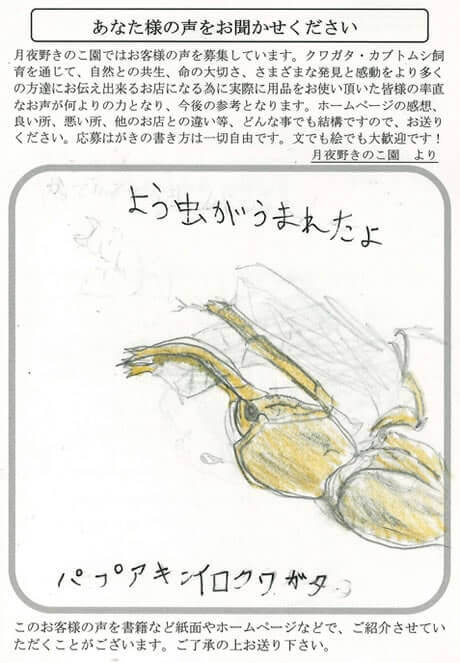 あなた様の声をお聞かせください
月夜野きのこ園ではお客様の声を募集しています。クワガタ・カブトムシ飼
育を通じて、自然との共生、命の大切さ、さまざまな発見と感動をより多く
の方達にお伝え出来るお店になる為に実際に用品をお使い頂いた皆様の率直
なお声が何よりの力となり、今後の参考となります。ホームページの感想、
良い所、悪い所、他のお店との違い等、どんな事でも結構ですので、お送り
ください。応募はがきの書き方は一切自由です。文でも絵でも大歓迎です!
月夜野きのこ園 より
よう虫がうまれたよ
パプアキンイロクワガタ
このお客様の声を書籍など紙面やホームページなどで、ご紹介させてい
ただくことがございます。ご了承の上お送り下さい。